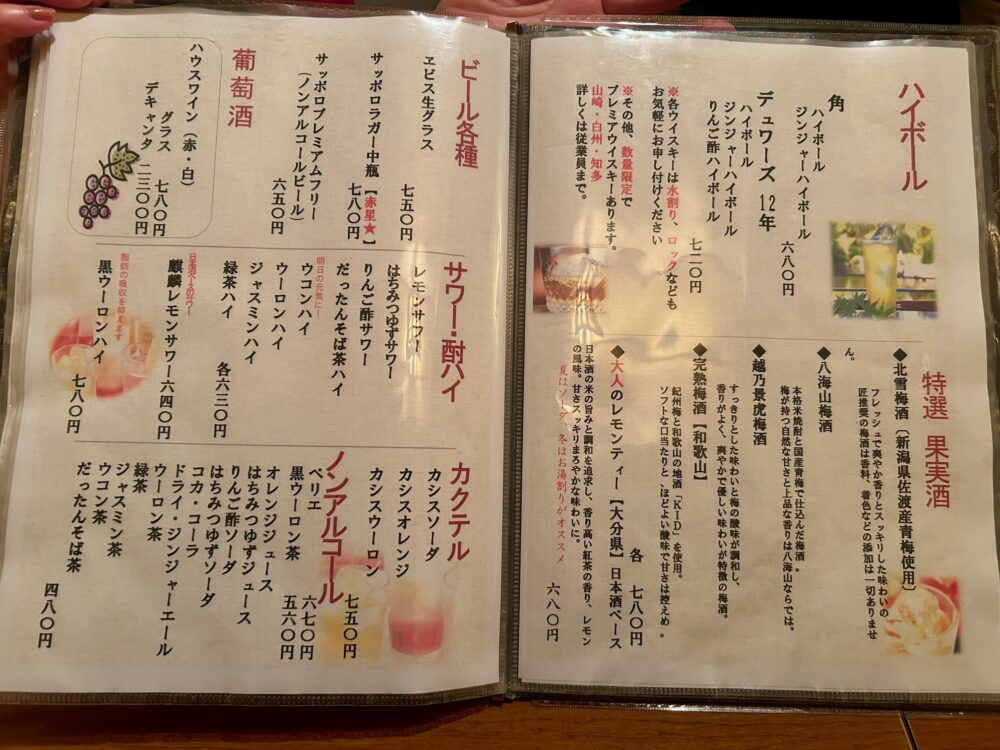 ハイボール
角
ハイボール
ジンジャーハイボール
六八〇円
デュワーズ 12年
ハイボール
ジンジャーハイボール
りんご酢ハイボール
七二〇円
※各ウイスキーは水割り、ロックなども
お気軽にお申し付けください
※その他、数量限定で
プレミアウイスキーあります。
山崎・白州・知多
詳しくは従業員まで。
特選 果実酒
◆北雪梅酒〔新潟県佐渡産青梅使用〕
フレッシュで爽やか香りとスッキリした味わいの
匠推奨の梅酒は香料、着色などの添加は一切ありませ
ん。
◆八海山梅酒
本格米焼酎と国産青梅で仕込んだ梅酒。
梅が持つ自然な甘さと上品な香りは八海山ならでは。
◆越乃景虎梅酒
すっきりとした味わいと梅の酸味が調和し、
香りがよく、爽やかで優しい味わいが特徴の梅酒。
◆完熟梅酒【和歌山】
紀州梅と和歌山の地酒「KID」を使用。
ソフトな口当たりと、ほどよい酸味で甘さは控えめ。
各 七八〇円
◆大人のレモンティー【大分県】日本酒ベース
日本酒の米の旨みと調和を追求し、香り高い紅茶の香り、レモン
の風味。甘さスッキリまろやかな味わいに。
夏はソーダ、冬はお湯割りがオススメ
六八〇円
ビール各種
ヱビス生グラス
七五〇円
サッポロラガー中瓶【赤星★】
七八〇円
サッポロプレミアムフリー
(ノンアルコールビール)
六五〇円
葡萄酒
ハウスワイン(赤・白)
グラス 七八〇円
デキャンタ 二三〇〇円
サワー・酎ハイ
レモンサワー
はちみつゆずサワー
りんご酢サワー
だったんそば茶ハイ
明日の元気に!
ウコンハイ
ウーロンハイ
ジャスミンハイ
緑茶ハイ
各六三〇円
日本酒ベースのサワー
麒麟レモンサワー六四〇円
脂肪の吸収を抑えます
黒ウーロンハイ
七八〇円
カクテル
カシスソーダ
カシスオレンジ
カシスウーロン
七五〇円
ノンアルコール
ペリエ
六七〇円
黒ウーロン茶
五六〇円
オレンジジュース
はちみつゆずジュース
りんご酢ソーダ
はちみつゆずソーダ
コカ・コーラ
ドライ・ジンジャーエール
ウーロン茶
緑茶
ジャスミン茶
ウコン茶
だったんそば茶
四八〇円